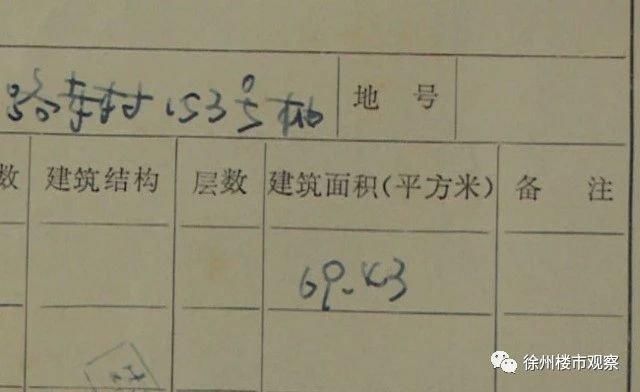 路东村153号楼 地号
数 建筑结构 层数 建筑面积(平方米) 备注
69.43
徐州楼市观察